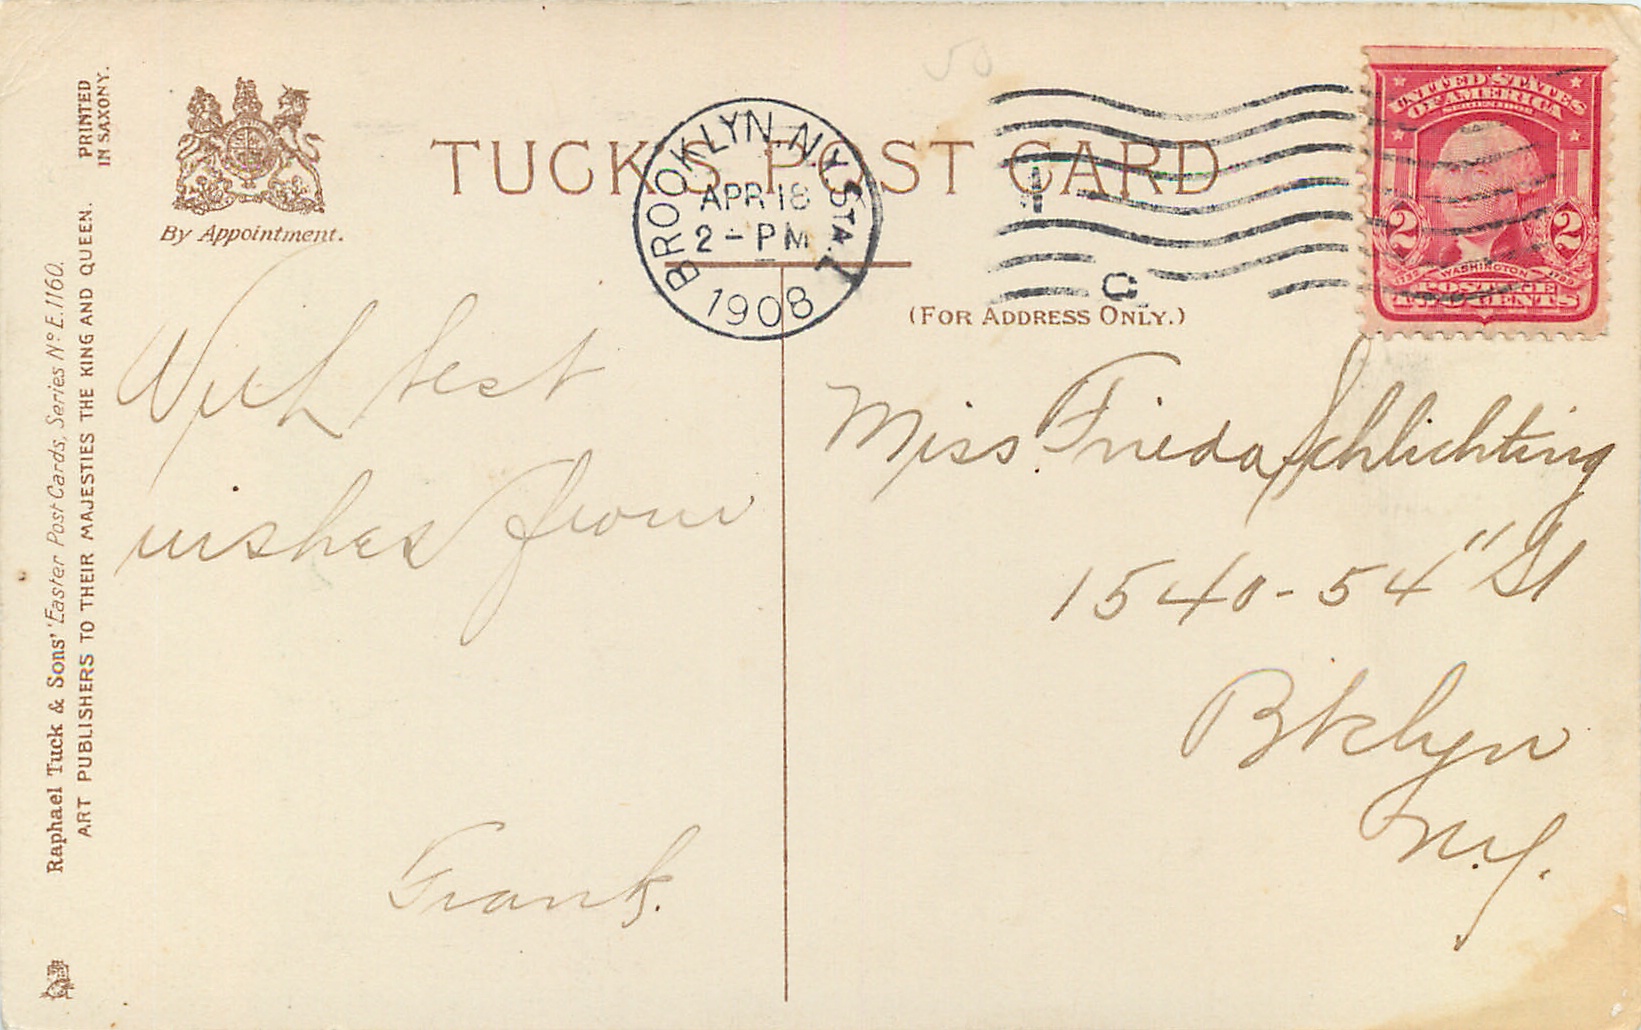 PRINTED
IN SAXONY.
Raphael Tuck & Sons' "Easter Post Cards, Series Nº E.1160.
ART PUBLISHERS TO THEIR MAJESTIES THE KING AND QUEEN.
By Appointment.
TUCK'S POST CARD
BROOKLYN, N.Y. STA. I
APR 18
2 - PM
1908
50
1
C
(FOR ADDRESS ONLY.)
UNITED STATES
OF AMERICA
SERIES 1902
2 2
1732 WASHINGTON 1799
POSTAGE
TWO CENTS
With best
wishes from
Frank.
Miss. Frieda Schlichting
1540 - 54" St
Bklyn
N.Y.